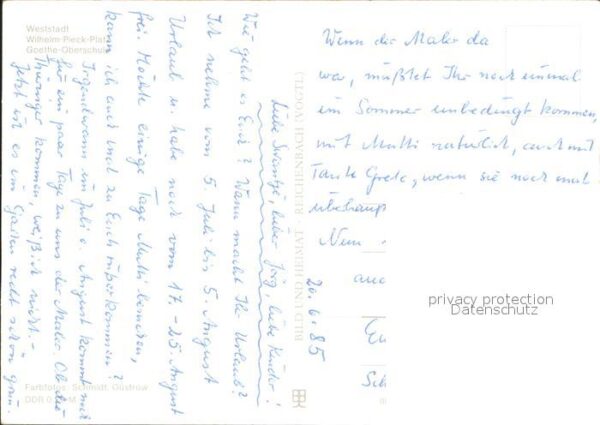 Weststadt
Wilhelm-Pieck-Platz
Goethe-Oberschule
20.6.85
Liebe Swantje, lieber Jörg, liebe Kinder!
Wie geht es Euch? Wann macht Ihr Urlaub?
Ich nehme vom 5. Juli bis 5. August
Urlaub u. habe noch vom 17.-25. August
frei. Möchte einige Tage Mutti besuchen,
kann ich auch mal zu Euch rüberkommen?
Irgendwann im Juli o. August kommt mal
für ein paar Tage zu uns der Maler. Ob die
Thüringer kommen, weiß ich nicht. -
Jetzt ist es im Garten recht schön grün.
Wenn der Maler da
war, müßtet Ihr noch einmal
im Sommer unbedingt kommen,
mit Mutti natürlich, auch mit
Tante Grete, wenn sie noch mal
überhaupt
Nun
BILD UND HEIMAT · REICHENBACH (VOGTL)
Farbfotos: Schmidt, Güstrow
DDR 0, M
privacy protection
Datenschutz